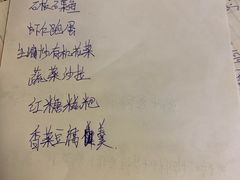 虾仁跑蛋
土猪炒有机花菜
蔬菜沙拉
红糖糍粑
香菜豆腐羹